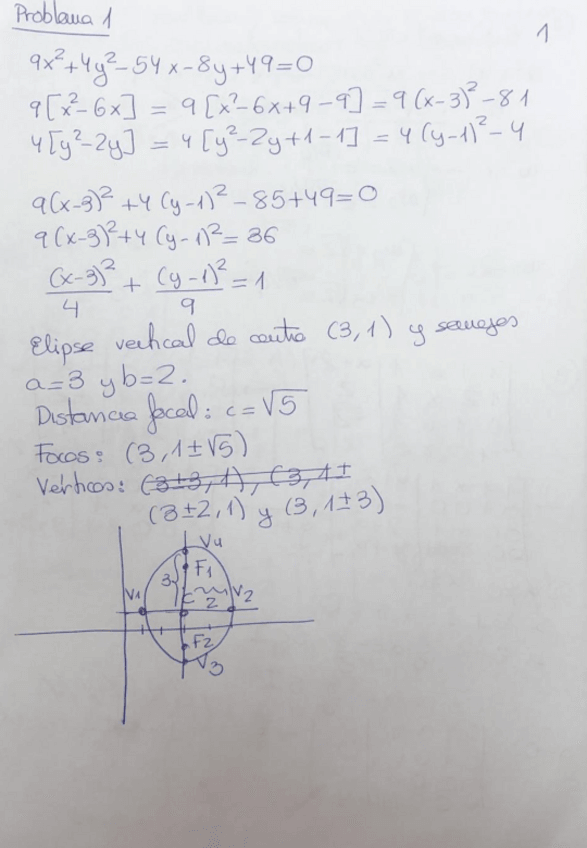 Problema 1
1
9x²+4y²-54x-8y+49=0
9[x²-6x] = 9[x²-6x+9-9] = 9(x-3)²-81
4[y²-2y] = 4[y²-2y+1-1] = 4(y-1)²-4
9(x-3)²+4(y-1)²-85+49=0
9(x-3)²+4(y-1)²=36
(x-3)²/4 + (y-1)²/9 = 1
Elipse vertical de centro (3,1) y semiejes
a=3 y b=2.
Distancia focal: c=√5
Focos: (3,1±√5)
Vértices: (3±3,1), (3,1±
(3±2,1) y (3,1±3)
V4
3 F1
V1 C 2 V2
F2
V3